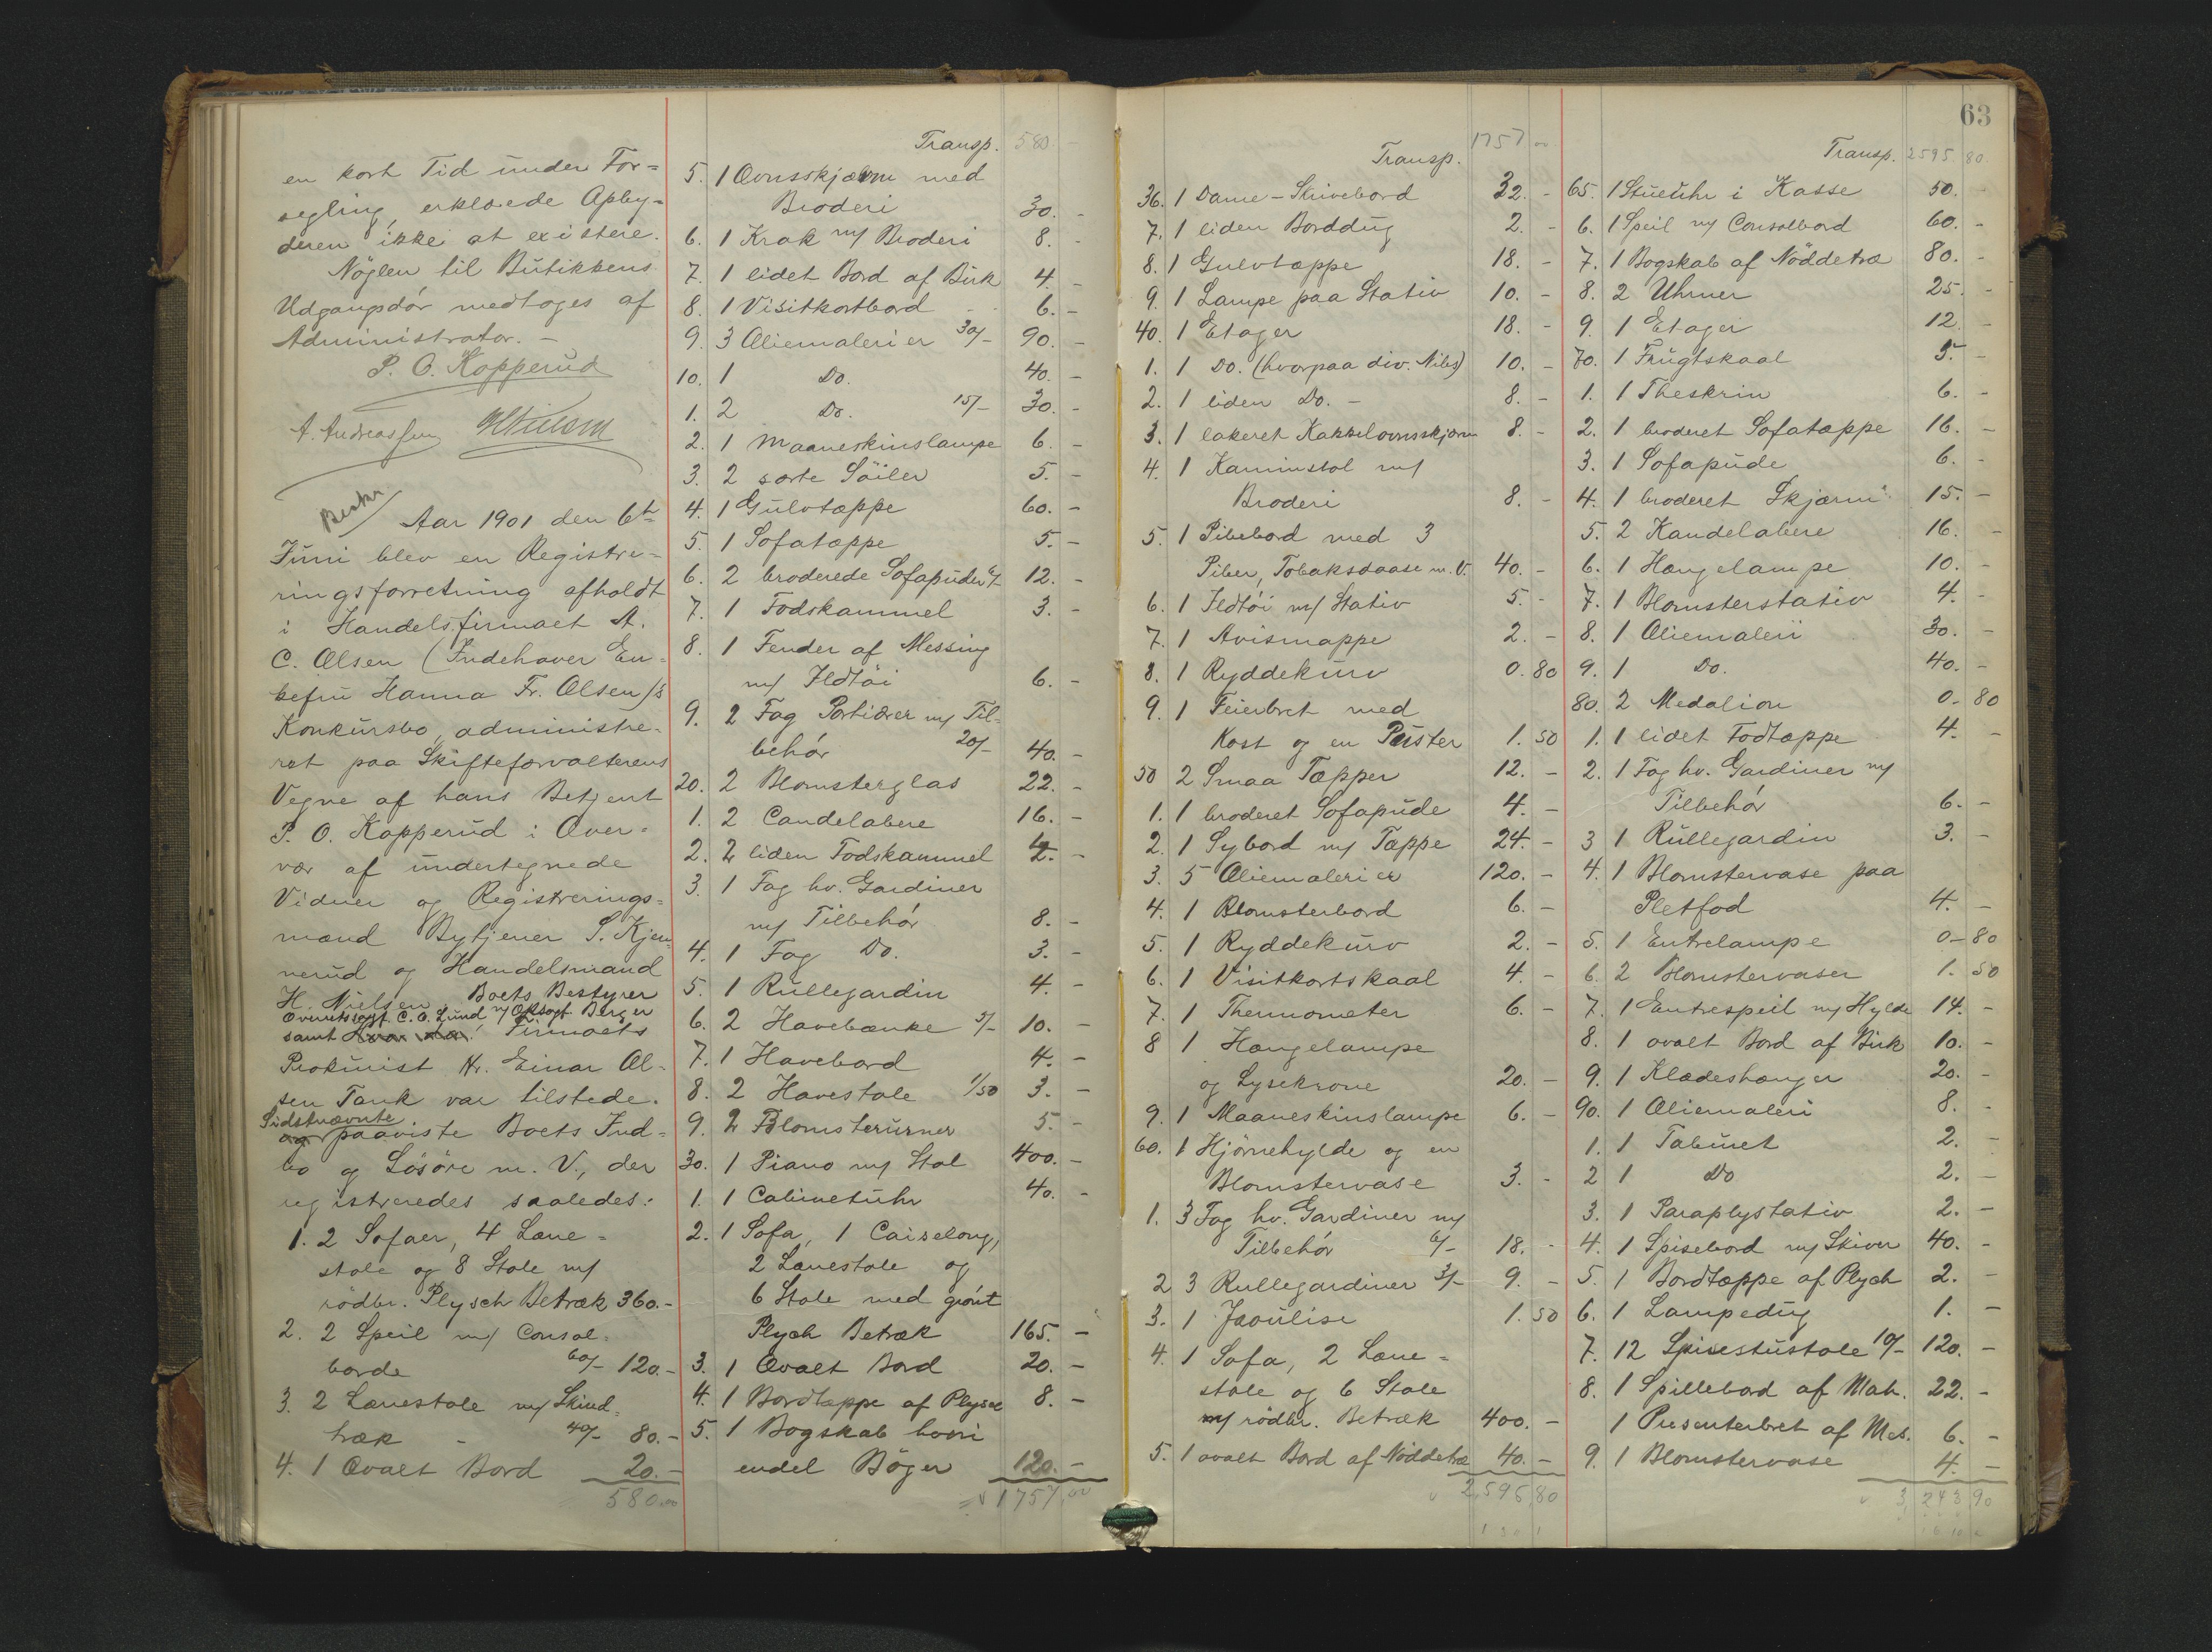 en kort Tid under For=
segling, erklærede Opby=
deren ikke at existere.
Nöglen til Butikkens
Udgangsdör medtoges af
Administrator. —
P. O. Kopperud
A. Andreassen HNielsen
Beskr.
Aar 1901 den 6te
Juni blev en Registre=
ringsforretning afholdt
i Handelsfirmaet A.
C. Olsen (Indehaver En=
kefru Hanna Fr. Olsen)s
Konkursbo, administre=
ret paa Skifteforvalterens
Vegne af hans Betjent
P. O. Kopperud i Over=
vær af undertegnede
Vidner og Registrerings=
mænd Bytjener S. Kjen=
nerud og Handelsmand
H. Nielsen. Boets Bestyrer
Overretssagf. C. O. Lund m/ Oksagf. Berger
samt Firmaets
Prokurist Hr. Einar Ol=
sen Tank var tilstede.
Sidstnævnte
og paaviste Boets Ind=
bo og Lösöre m. V., der
registreredes saaledes:
1. 2 Sofaer, 4 Læne=
stole og 8 Stole m/
rödbr. Plysch Betræk 360.-
2. 2 Speil m/ Consol=
borde 60/- 120.-
3. 2 Lænestole m/ Skind=
træk - 40/- 80.-
4. 1 Ovalt Bord 20.-
580.00
Transp. 580 -
5. 1 Ovnsskjærm med
Broderi 30. -
6. 1 Krak m/ Broderi 8. -
7. 1 lidet Bord af Birk 4. -
8. 1 Visitkortbord 6. -
9. 3 Oliemalerier 30/- 90. -
10. 1 Do. 40. -
1. 2 Do. 15/- 30. -
2. 1 Maaneskinslampe 6. -
3. 2 sorte Söiler 5. -
4. 1 Gulvtæppe 60. -
5. 1 Sofatæppe 5. -
6. 2 broderede Sofapuder 6/- 12. -
7. 1 Fodskammel 3. -
8. 1 Fender af Messing
m/ Ildtöi 6. -
9. 2 Fag Portiærer m/ Til=
behör 20/- 40. -
20. 2 Blomsterglas 22. -
1. 2 Candelabere 16. -
2. 2 liden Fodskammel 2. -
3. 1 Fag hv. Gardiner
m/ Tilbehör 8. -
4. 1 Fag Do. 3. -
5. 1 Rullegardin 4. -
6. 2 Havebænke 5/- 10. -
7. 1 Havebord 4. -
8. 2 Havestole 1/50 3. -
9. 2 Blomsterurner 5. -
30. 1 Piano m/ Stol 400. -
1. 1 Cabinetuhr 40. -
2. 1 Sofa, 1 Caiselong,
2 Lænestole og
6 Stole med grönt
Plych Betræk 165. -
3. 1 Ovalt Bord 20. -
4. 1 Bordtæppe af Plysch 8. -
5. 1 Bogskab hvori
endel Böger 120. -
1757,00
Transp. 1757 00
36. 1 Dame-Skrivebord 32. -
7. 1 liden Borddug 2. -
8. 1 Gulvtæppe 18. -
9. 1 Lampe paa Stativ 10. -
40. 1 Etager 18. -
1. 1 Do. (hvorpaa div. Nibs) 10. -
2. 1 liden Do. - 8. -
3. 1 lakeret Kakkelovnsskjærm 8. -
4. 1 Kaminstol m/
Broderi 8. -
5. 1 Pibebord med 3
Piber, Tobaksdaase m. V. 40. -
6. 1 Ildtöi m/ Stativ 5. -
7. 1 Avismappe 2. -
8. 1 Ryddekurv 0.80
9. 1 Feiebret med
Kost og en Puster 1.50
50 2 Smaa Tæpper 12. -
1. 1 broderet Sofapude 4. -
2. 1 Sybord m/ Tæppe 24. -
3. 5 Oliemalerier 120. -
4. 1 Blomsterbord 6. -
5. 1 Ryddekurv 2. -
6. 1 Visitkortskaal 4. -
7. 1 Thermometer 6. -
8 1 Hængelampe
og Lysekrone 20. -
9. 1 Maaneskinslampe 6. -
60. 1 Hjörnehylde og en
Blomstervase 3. -
1. 3 Fag hv. Gardiner m/
Tilbehör 6/- 18. -
2 3 Rullegardiner 3/- 9. -
3. 1 Jaoulise 1.50
4. 1 Sofa, 2 Læne=
stole og 6 Stole
m/ rödbr. Betræk 400. -
5. 1 ovalt Bord af Nöddetræ 40. -
2,595,80
63
Transp. 2595 80
65. 1 Stueuhr i Kasse 50. -
6. 1 Speil m/ Consolbord 60. -
7. 1 Bogskab af Nöddetræ 80. -
8. 2 Uhrner 25. -
9. 1 Etager 12. -
70. 1 Frugtskaal 5. -
1. 1 Theskrin 6. -
2. 1 broderet Sofatæppe 16. -
3. 1 Sofapude 6. -
4. 1 broderet Skjærm 15. -
5. 2 Kandelabere 16. -
6. 1 Hængelampe 10. -
7. 1 Blomsterstativ 4. -
8. 1 Oliemaleri 30. -
9. 1 Do. 40. -
80. 2 Medalion 0-80
1. 1 lidet Fodtæppe 4. -
2. 1 Fag hv. Gardiner m/
Tilbehör 6. -
3 1 Rullegardin 3. -
4. 1 Blomstervase paa
Pletfod 4. -
5. 1 Entrelampe 0-80
6. 2 Blomstervaser 1.50
7. 1 Entrespeil m/ Hylde 14. -
8. 1 ovalt Bord af Birk 10. -
9. 1 Klædeshænger 20. -
90. 1 Oliemaleri 8. -
1. 1 Taburet 2. -
2 1 Do 2. -
3. 1 Paraplystativ 2. -
4. 1 Spisebord m/ Skiver 40. -
5. 1 Bordtæppe af Plych 2. -
6. 1 Lampedug 1. -
7. 12 Spisestustole 10/- 120. -
8. 1 Spillebord af Mah. 22. -
1 Presenterbret af Mes. 6. -
9. 1 Blomstervase 4. -
3,243 90